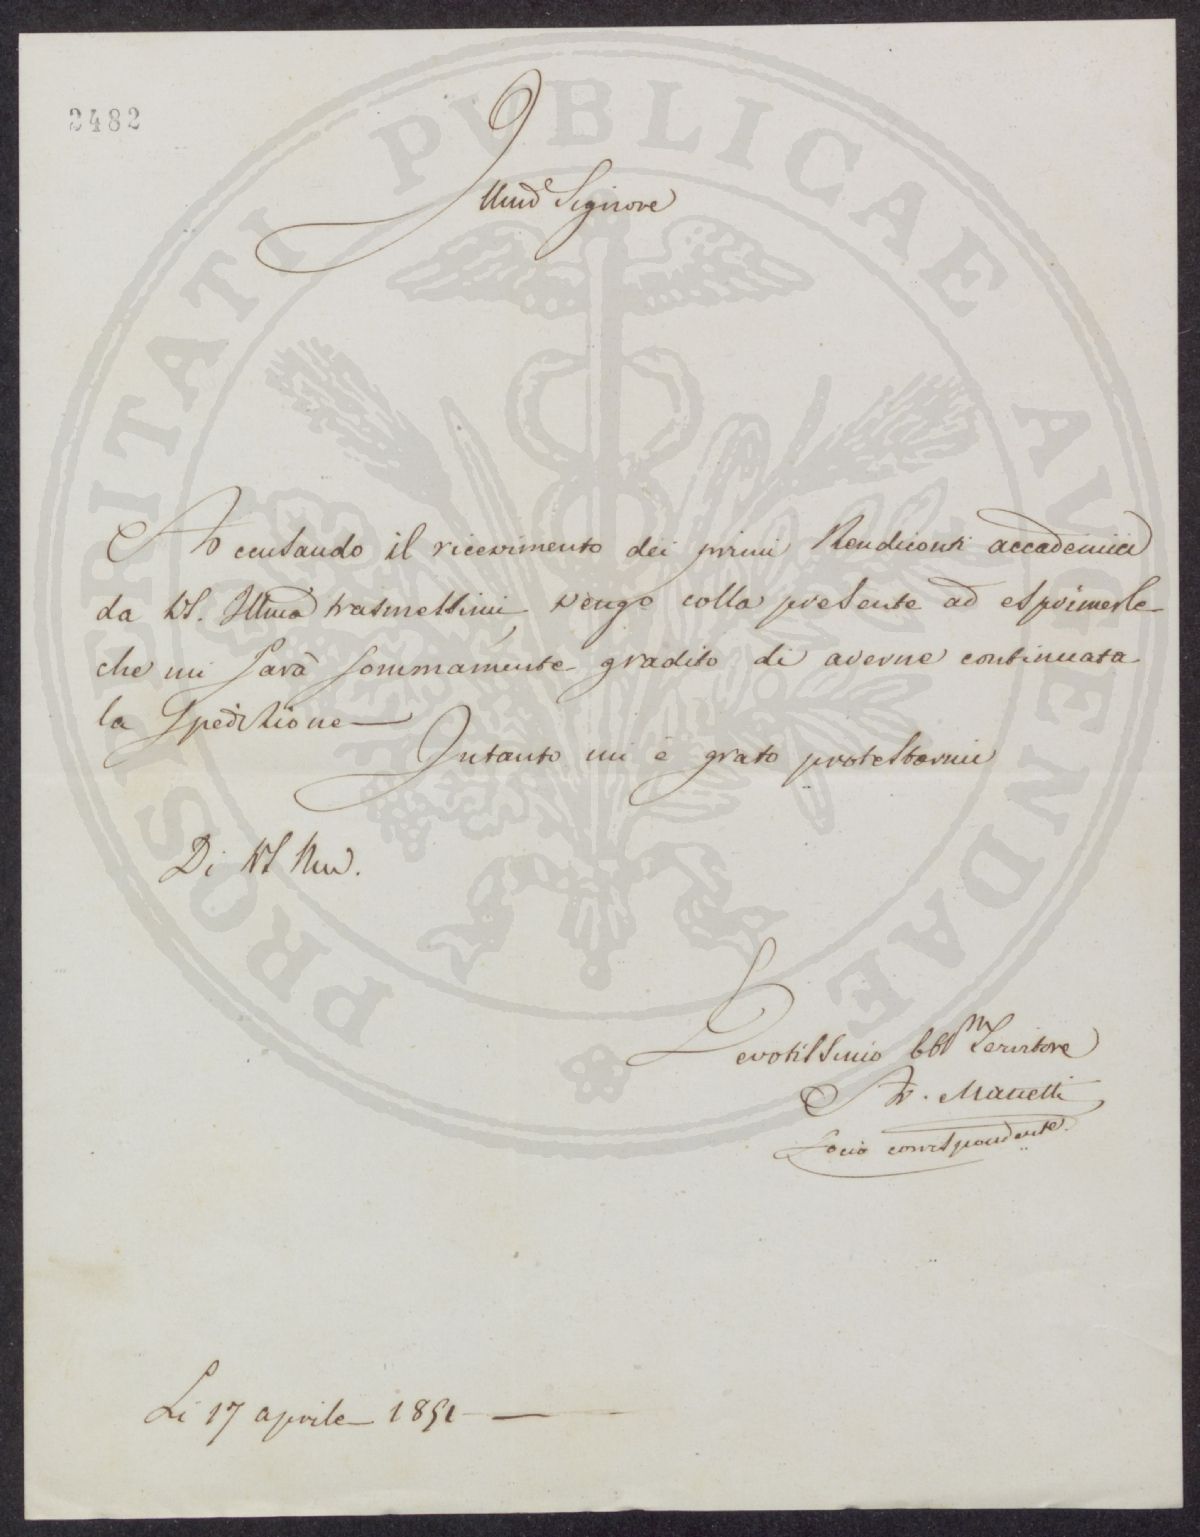 2482
Illmo Signore
Accusando il ricevimento dei primi Rendiconti accademici
da VS. Illma trasmettimi, vengo colla presente ad esprimerle
che mi sarà sommamente gradito di averne continuata
la spedizione
Intanto mi è grato protestarmi
Di VS Illma.
Devotissimo obbmo Servitore
A. Manetti
Socio corrispondente.
Li 17 aprile 1851
PROSPERITATI PUBLICAE AUGENDAE